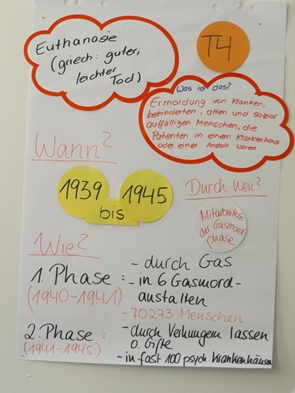 Euthanasie
(griech: guter,
leichter
Tod)
T4
Was ist das?
Ermordung von Kranken,
behinderten, alten und sozial
auffälligen Menschen, die
Patienten in einem Krankenhaus
oder einer Anstalt waren
Wann?
1939
bis
1945
Durch wen?
Mitarbeiter
der Gasmord
phase
Wie?
1. Phase :
(1940-1941)
- durch Gas
- in 6 Gasmord-
anstalten
- 70273 Menschen
2. Phase :
(1941-1945)
- durch Verhungern lassen
o. Gifte
- in fast 100 psych. Krankenhäusern